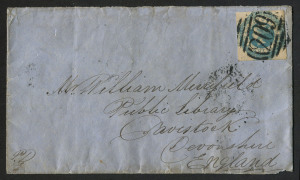 209
Mr. William Merrifield
Public Library
Tavistock
Devonshire
England